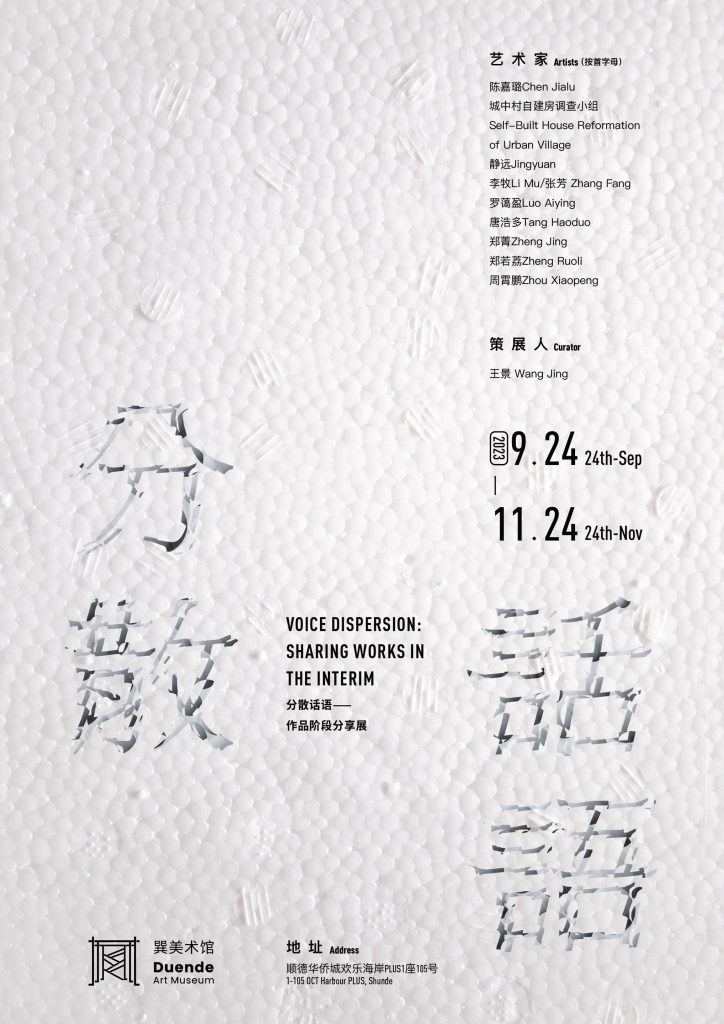 艺术家 Artists (按首字母)
陈嘉璐Chen Jialu
城中村自建房调查小组
Self-Built House Reformation
of Urban Village
静远Jingyuan
李牧Li Mu/张芳 Zhang Fang
罗蔼盈Luo Aiying
唐浩多Tang Haoduo
郑菁Zheng Jing
郑若荔Zheng Ruoli
周霄鹏Zhou Xiaopeng
策展人 Curator
王景 Wang Jing
2023 9.24 24th-Sep
|
11.24 24th-Nov
分
散
話
語
VOICE DISPERSION:
SHARING WORKS IN
THE INTERIM
分散话语——
作品阶段分享展
巽美术馆
Duende
Art Museum
地址 Address
顺德华侨城欢乐海岸PLUS1座105号
1-105 OCT Harbour PLUS, Shunde